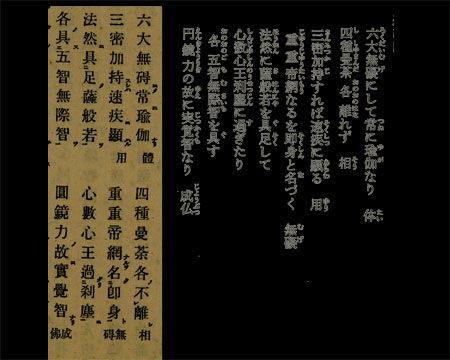 六大無礙にして常に瑜伽なり 体
四種曼荼各離れず 相
三密加持すれば速疾に顕る 用
重重帝網なるを即身と名づく 無礙
法然に薩般若を具足して
心数心王刹塵に過ぎたり
各五智無際智を具す
円鏡力の故に実覚智なり 成仏
六大無碍常瑜伽 體 四種曼荼各不離 相
三密加持速疾顯 用 重重帝網名卽身 無碍
法然具足薩般若 心數心王過刹塵
各具五智無際智 圓鏡力故實覺智 成佛